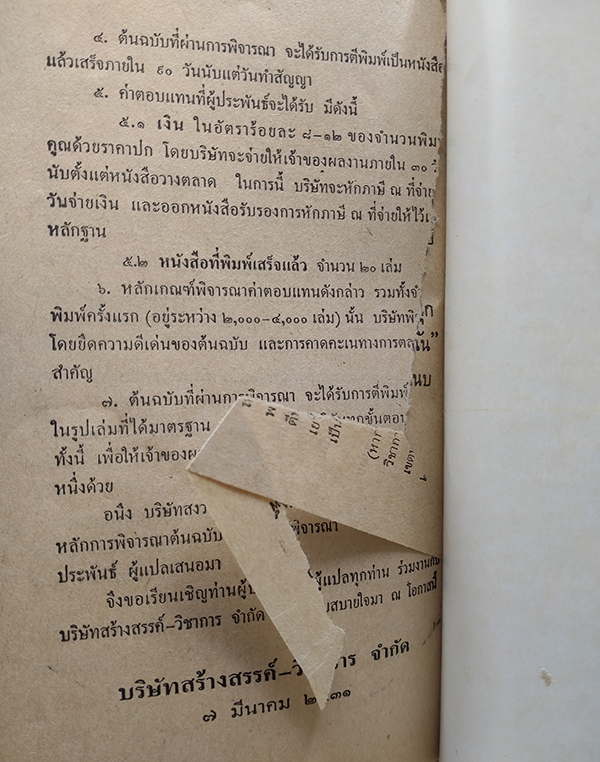 ๔. ต้นฉบับที่ผ่านการพิจารณา จะได้รับการตีพิมพ์เป็นหนังสือ
แล้วเสร็จภายใน ๙๐ วันนับแต่วันทำสัญญา
๕. ค่าตอบแทนที่ผู้ประพันธ์จะได้รับ มีดังนี้
๕.๑ เงิน ในอัตราร้อยละ ๘-๑๒ ของจำนวนพิม
คูณด้วยราคาปก โดยบริษัทจะจ่ายให้เจ้าของผลงานภายใน ๓๐
นับตั้งแต่หนังสือวางตลาด ในการนี้ บริษัทจะหักภาษี ณ ที่จ่าย
วันจ่ายเงิน และออกหนังสือรับรองการหักภาษี ณ ที่จ่ายให้ไว้
หลักฐาน
๕.๒ หนังสือที่พิมพ์เสร็จแล้ว จำนวน ๒๐ เล่ม
๖. หลักเกณฑ์พิจารณาค่าตอบแทนดังกล่าว รวมทั้ง
พิมพ์ครั้งแรก (อยู่ระหว่าง ๒,๐๐๐-๔,๐๐๐ เล่ม) นั้น บริษัท
โดยยึดความดีเด่นของต้นฉบับ และการคาดคะเนทางการ
สำคัญ
๗. ต้นฉบับที่ผ่านการพิจารณา จะได้รับการตีพิมพ์
ในรูปเล่มที่ได้มาตรฐาน
ทั้งนี้ เพื่อให้เจ้าของ
หนึ่งด้วย
อนึ่ง บริษัท
หลักการพิจารณาต้นฉบับ พิจารณา
ประพันธ์ ผู้แปลเสนอมา ผู้แปลทุกท่าน ร่วมงาน
จึงขอเรียนเชิญท่าน
บริษัทสร้างสรรค์-วิชาการ จำกัด สบายใจมา ณ โอกาสนี้
บริษัทสร้างสรรค์-วิชาการ จำกัด
๗ มีนาคม ๒๕๓๑